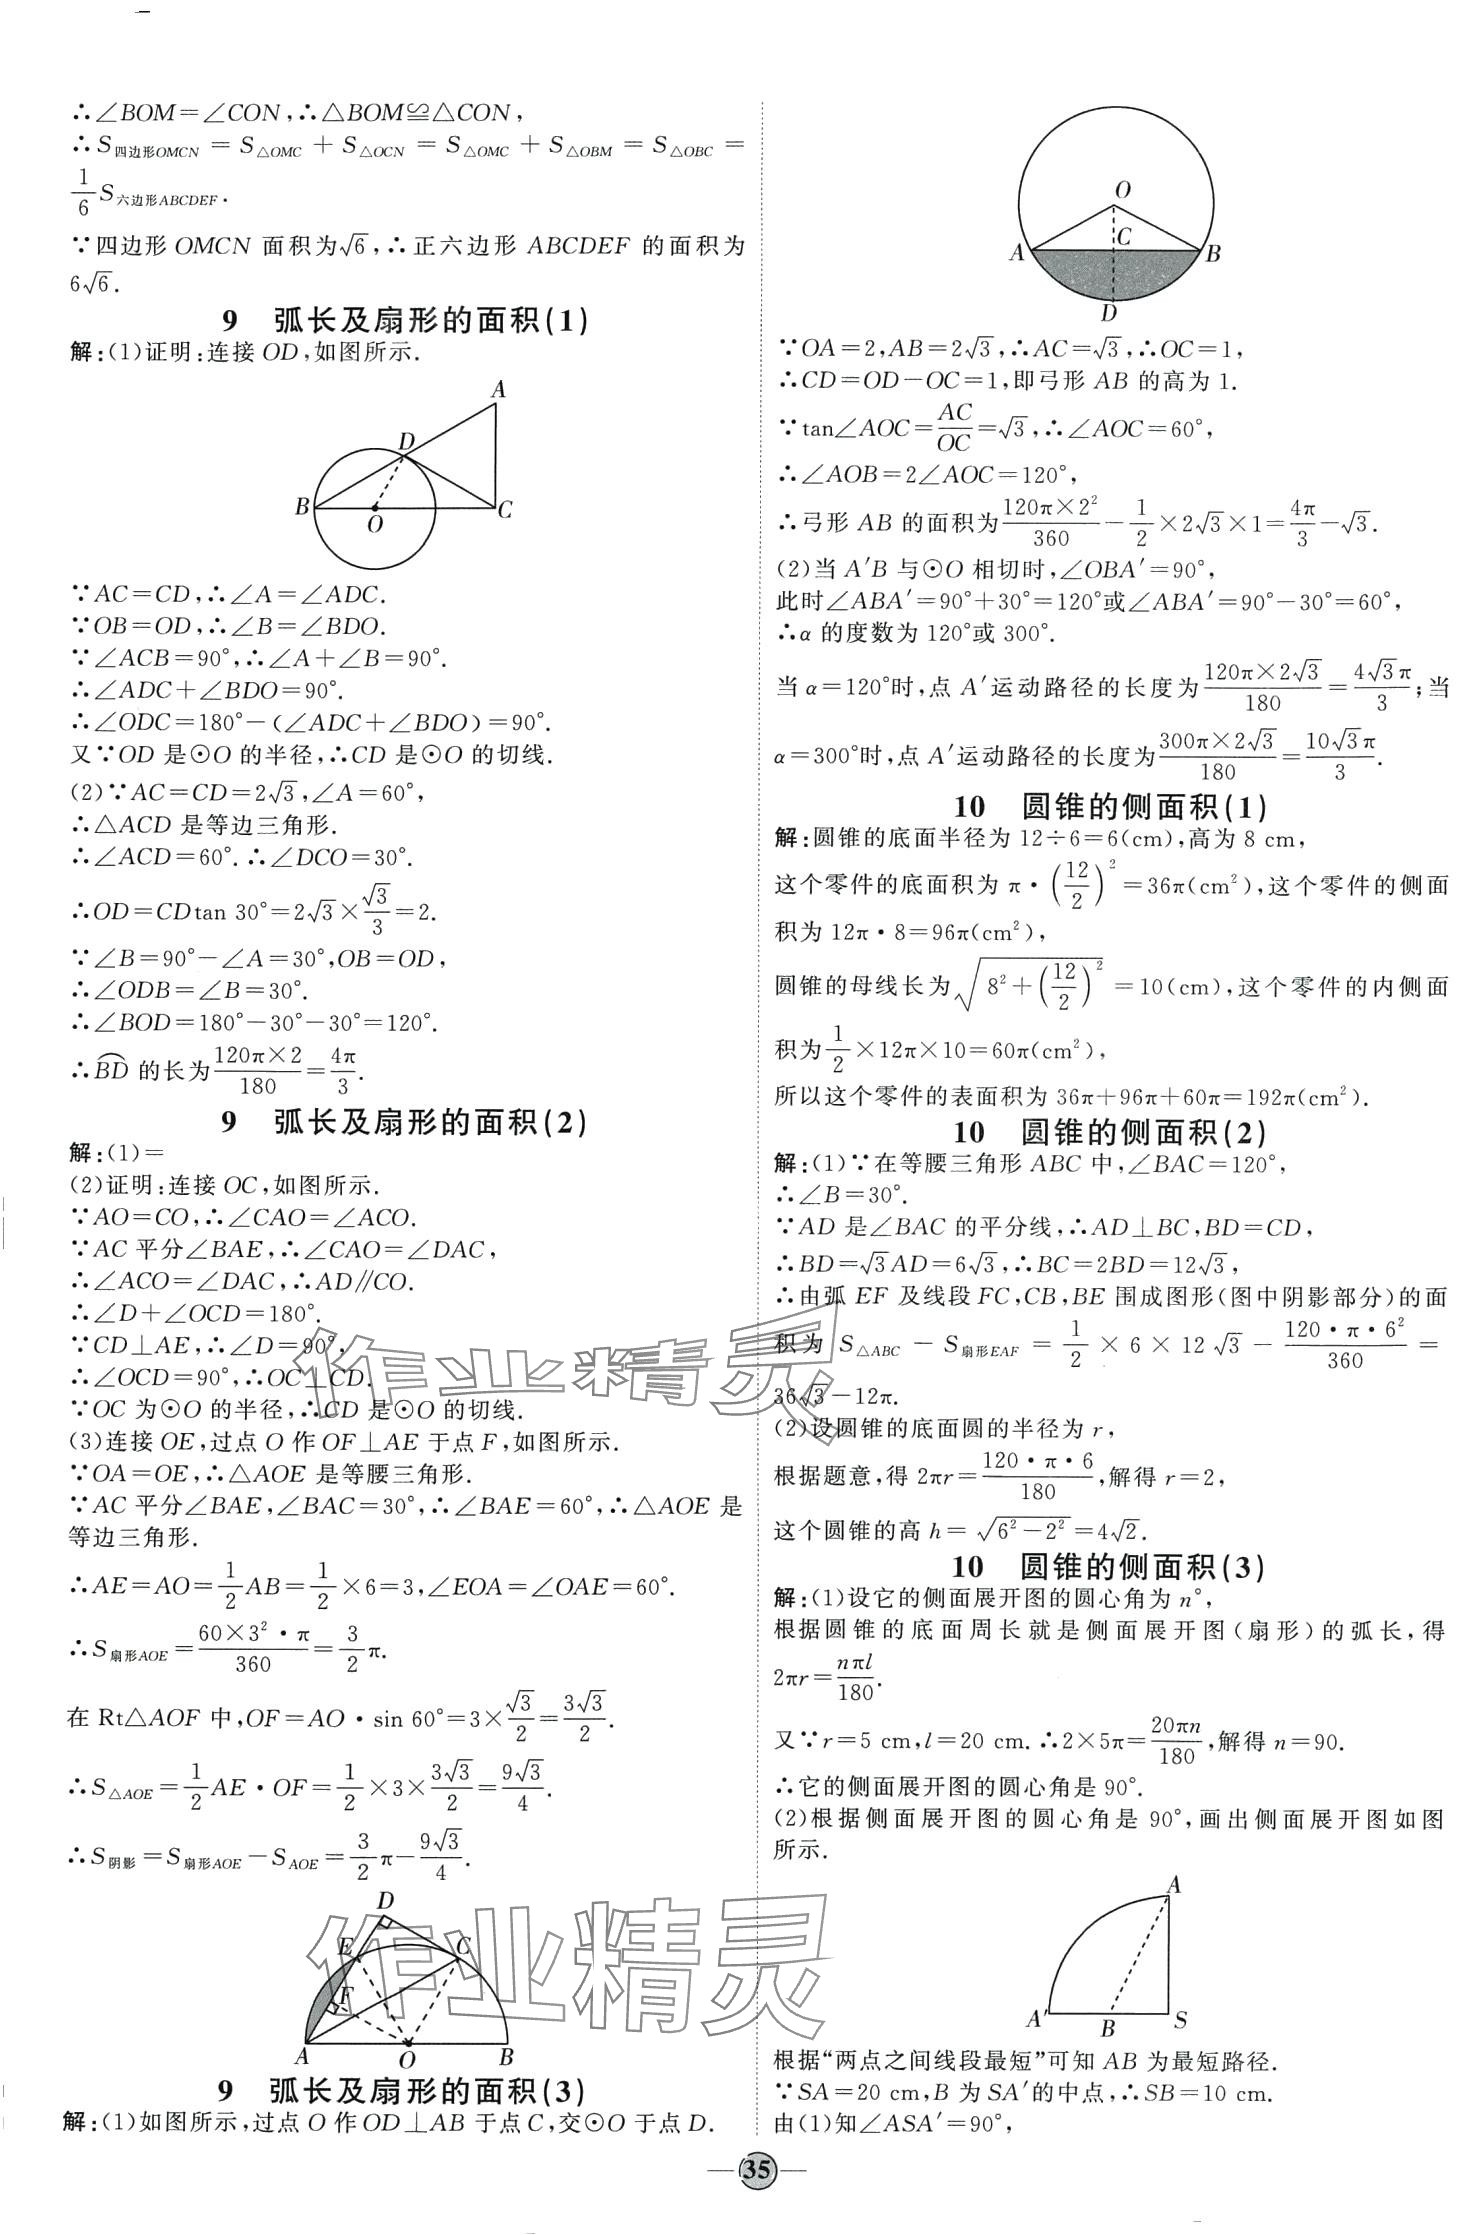 ∴∠BOM=∠CON,∴△BOM≌△CON,
∴S四边形OMCN = S△OMC + S△OCN = S△OMC + S△OBM = S△OBC =
1/6 S六边形ABCDEF.
∵四边形 OMCN 面积为√6,∴正六边形 ABCDEF 的面积为
6√6.
9 弧长及扇形的面积(1)
解:(1)证明:连接 OD,如图所示.
A
D
B
O
C
∵AC=CD,∴∠A=∠ADC.
∵OB=OD,∴∠B=∠BDO.
∵∠ACB=90°,∴∠A+∠B=90°.
∴∠ADC+∠BDO=90°.
∴∠ODC=180°-(∠ADC+∠BDO)=90°.
又∵OD 是⊙O 的半径,∴CD 是⊙O 的切线.
(2)∵AC=CD=2√3,∠A=60°,
∴△ACD 是等边三角形.
∴∠ACD=60°.∴∠DCO=30°.
∴OD=CDtan 30°=2√3×√3/3=2.
∵∠B=90°-∠A=30°,OB=OD,
∴∠ODB=∠B=30°.
∴∠BOD=180°-30°-30°=120°.
∴⌒BD 的长为120π×2/180=4π/3.
9 弧长及扇形的面积(2)
解:(1)=
(2)证明:连接 OC,如图所示.
∵AO=CO,∴∠CAO=∠ACO.
∵AC 平分∠BAE,∴∠CAO=∠DAC,
∴∠ACO=∠DAC,∴AD∥CO.
∴∠D+∠OCD=180°.
∵CD⊥AE,∴∠D=90°,
∴∠OCD=90°,∴OC⊥CD.
∵OC 为⊙O 的半径,∴CD 是⊙O 的切线.
(3)连接 OE,过点 O 作 OF⊥AE 于点 F,如图所示.
∵OA=OE,∴△AOE 是等腰三角形.
∵AC 平分∠BAE,∠BAC=30°,∴∠BAE=60°,∴△AOE 是
等边三角形.
∴AE=AO=1/2AB=1/2×6=3,∠EOA=∠OAE=60°.
∴S扇形AOE=60×3²·π/360=3/2π.
在 Rt△AOF 中,OF=AO·sin 60°=3×√3/2=3√3/2.
∴S△AOE=1/2AE·OF=1/2×3×3√3/2=9√3/4.
∴S阴影=S扇形AOE-SAOE=3/2π-9√3/4.
D
E
C
F
A
O
B
9 弧长及扇形的面积(3)
解:(1)如图所示,过点 O 作 OD⊥AB 于点 C,交⊙O 于点 D.
O
C
A
B
D
∵OA=2,AB=2√3,∴AC=√3,∴OC=1,
∴CD=OD-OC=1,即弓形 AB 的高为 1.
∵tan∠AOC=AC/OC=√3,∴∠AOC=60°,
∴∠AOB=2∠AOC=120°,
∴弓形 AB 的面积为120π×2²/360-1/2×2√3×1=4π/3-√3.
(2)当 A′B 与⊙O 相切时,∠OBA′=90°,
此时∠ABA′=90°+30°=120°或∠ABA′=90°-30°=60°,
∴α 的度数为 120°或 300°.
当 α=120°时,点 A′运动路径的长度为120π×2√3/180=4√3π/3;当
α=300°时,点 A′运动路径的长度为300π×2√3/180=10√3π/3.
10 圆锥的侧面积(1)
解:圆锥的底面半径为 12÷6=6(cm),高为 8 cm,
这个零件的底面积为 π·(12/2)²=36π(cm²),这个零件的侧面
积为 12π·8=96π(cm²),
圆锥的母线长为√(8²+(12/2)²)=10(cm),这个零件的内侧面
积为1/2×12π×10=60π(cm²),
所以这个零件的表面积为 36π+96π+60π=192π(cm²).
10 圆锥的侧面积(2)
解:(1)∵在等腰三角形 ABC 中,∠BAC=120°,
∴∠B=30°.
∵AD 是∠BAC 的平分线,∴AD⊥BC,BD=CD,
∴BD=√3AD=6√3,∴BC=2BD=12√3,
∴由弧 EF 及线段 FC,CB,BE 围成图形(图中阴影部分)的面
积为 S△ABC - S扇形EAF = 1/2 × 6 × 12√3 - 120·π·6²/360 =
36√3-12π.
(2)设圆锥的底面圆的半径为 r,
根据题意,得 2πr=120·π·6/180,解得 r=2,
这个圆锥的高 h=√(6²-2²)=4√2.
10 圆锥的侧面积(3)
解:(1)设它的侧面展开图的圆心角为 n°,
根据圆锥的底面周长就是侧面展开图(扇形)的弧长,得
2πr=nπl/180.
又∵r=5 cm,l=20 cm.∴2×5π=20πn/180,解得 n=90.
∴它的侧面展开图的圆心角是 90°.
(2)根据侧面展开图的圆心角是 90°,画出侧面展开图如图
所示.
A
A′
B
S
根据“两点之间线段最短”可知 AB 为最短路径.
∵SA=20 cm,B 为 SA′的中点,∴SB=10 cm.
由(1)知∠ASA′=90°,
35
作业精灵
作业精灵